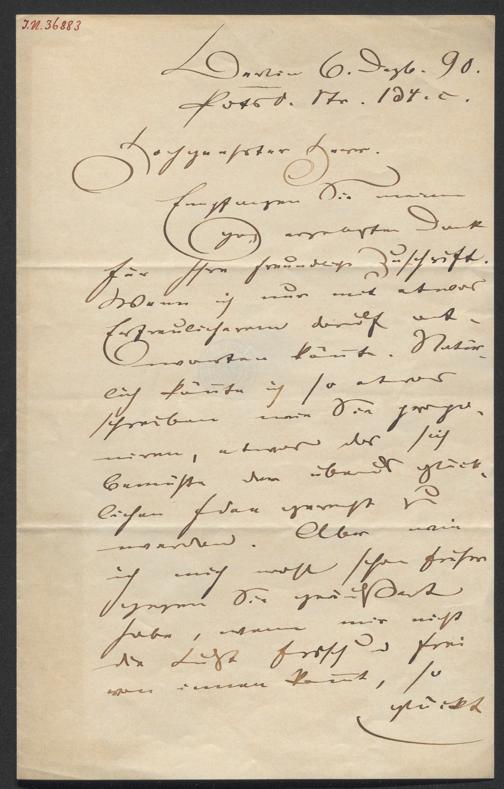 I.N. 36883
Berlin 6. Dezb. 90.
Potsd. Str. 134.c.
Hochgeehrter Herr.
Empfangen Sie meinen
ganz ergebnsten Dank
für Ihre freundliche Zuschrift.
Wenn ich nur mit etwas
Erfreulicherem darauf ant-
worten könnte. Natür-
lich könnte ich so etwas
schreiben wie Sie propo-
niren, etwas das sich
bemühte der überaus glück-
lichen Idee gerecht zu
werden. Aber wie
ich mich wohl schon früher
gegen Sie geäußert
habe, wenn mir nicht
die Lust frisch u frei
von innen kommt, so
glückt